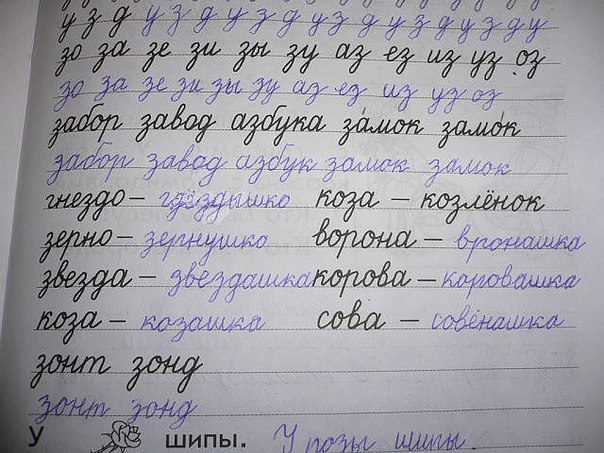 у з д у з д у з д у з д у з д у з д у
зо за зе зи зы зу аз ез из уз оз
зо за зе зи зы зу аз ез из уз оз
забор завод азбука за́мок замо́к
забор завад азбук замок замок
гнездо – гдёздышко коза – козлёнок
зерно – зернушко ворона – вронашка
звезда – звездашка корова – коровашка
коза – козашка сова – совёнашка
зонт зонд
зонт зонд
У шипы. У розы шипы.